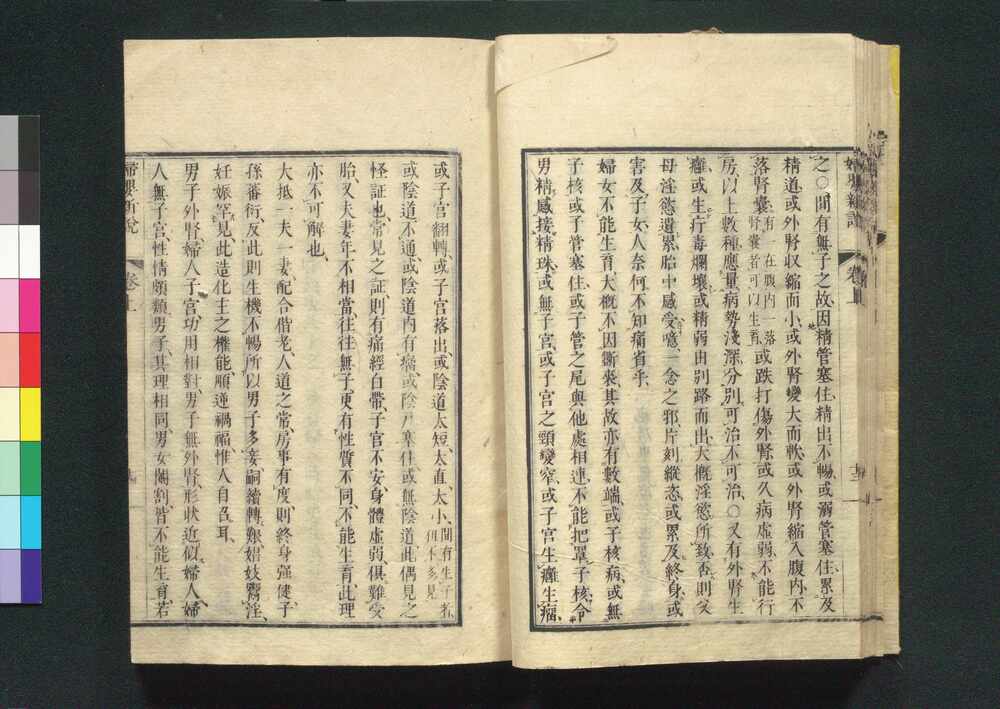 之○間有無子之故因精管塞住精出不暢或溺管塞住累及
精道或外腎收縮而小或外腎變大而軟或外腎縮入腹內不
落腎囊有一在腹內一落腎囊者可以生育或跌打傷外腎或久病虛弱不能行
房以上數種應量病勢淺深分別可治不可治○又有外腎生
癰或生疔毒爛壞或精弱由別路而出大概淫慾所致否則父
母淫慾遺累胎中感受噫一念之邪片刻縱恣或累及終身或
害及子女人奈何不知痛省乎
婦女不能生育大概不因撕裂其故亦有數端或子核病或無
子核或子管塞住或子管之尾與他處相連不能把罩子核令
男精感接精珠或無子宮或子宮之頸變窄或子宮生癰生瘤
或子宮翻轉或子宮落出或陰道太短太直大小間有生子者但不多見
或陰道不通或陰道內有瘤或陰戶塞住或無陰道此偶見之
怪証也常見之証則有痛經白帶子宮不安身體虛弱俱難受
胎又夫妻年不相當往往無子更有性質不同不能生育此理
亦不可解也
大抵一夫一妻配合偕老人道之常房事有度則終身强健子
孫蕃衍反此則生機不暢所以男子多妾嗣續轉艱娼妓醫淫
妊娠罕見此造化主之權能順逆禍福惟人自召耳
男子外腎婦人子宮功用相對男子無外腎形狀近似婦人婦
人無子宮性情頗類男子其理相同男女閹割皆不能生育若
婦嬰新說
卷上